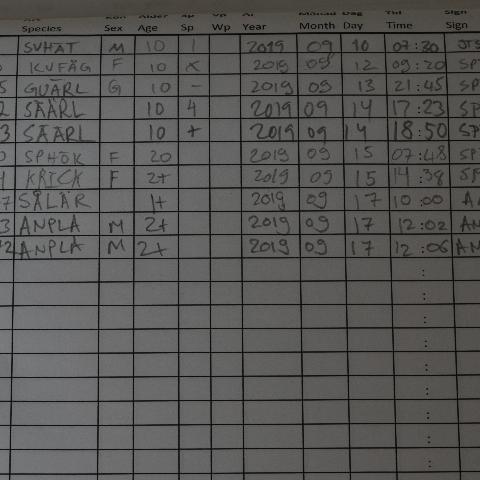 Species Sex Age Sp Wp Year Month Day Time Sign
SVHAT M 10 1 2019 09 10 07:30
KUFÄG F 10 X 2019 09 12 09:20
GUÄRL G 10 - 2019 09 13 21:45
SÄÄRL 10 4 2019 09 14 17:23
SÄÄRL 10 + 2019 09 14 18:50
SPHÖK F 20 2019 09 15 07:48
KRICK F 2+ 2019 09 15 14:38
SÅLÄR 1+ 2019 09 17 10:00
ANPLA M 2+ 2019 09 17 12:02
ANPLA M 2+ 2019 09 17 12:06